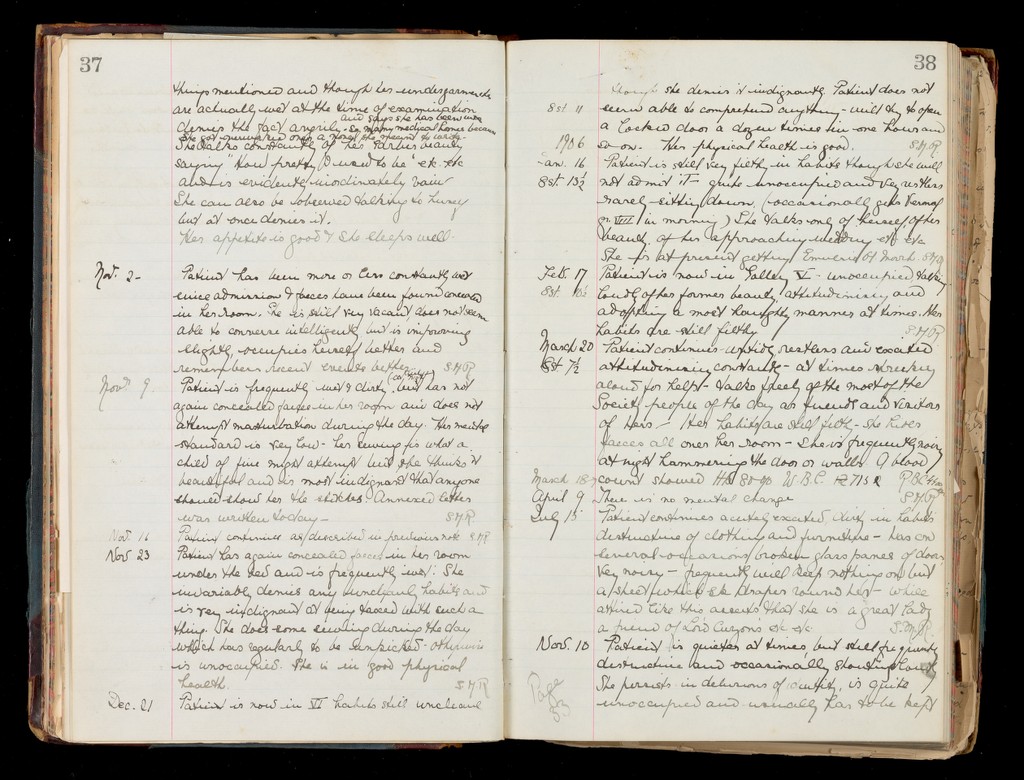 37
things mentioned and though her undergarments
are actually wet at the time of examination
denies the fact angrily. So many medical homes because
and says she has been in
She got unwashed once a month she meant to write
She talks constantly of her former beauty
saying "How pretty I used to be" etc. etc
and is evidently inordinately vain
She can also be observed talking to herself
but at once denies it.
Her appetite is good & she sleeps well
Nov. 2- Patient has been more or less constantly wet
since admission & faeces have been found concealed
in her room. She is still very vacant, does not seem
able to converse intelligently but is improving
slightly, occupies herself better and
remembers recent events better S.M.R
Nov. 9. Patient is frequently wet & dirty, but has not
again concealed faeces in her room and does not
attempt masturbation during the day. Her mental
standard is very low - her sewing is what a
child of five might attempt but she thinks it
beautiful and is most indignant that anyone
should show her the stitches. Annexed letter
was written today - S.M.R
Nov. 16 Patient continues as described in previous note S.M.R
Nov 23 Patient has again concealed faeces in her room
under the bed and is frequently wet. She
invariably denies any uncleanly habits and
is very indignant at being taxed with such a
thing. She does some sewing during the day
which has regularly to be unpicked - otherwise
is unoccupied. She is in good physical
health. S.M.R
Dec. 21 Patient is now in VI habits still unclean
38
though she denies it indignantly. Patient does not
8st. 11 seem able to comprehend anything - will try to open
a locked door a dozen times in one hour and
1906 so on. Her physical health is good. S.M.R
Jan. 16 Patient is still very filthy in habits though she will
8st. 13½ not admit it - quite unoccupied and very restless
rarely sitting down. (occasionally gets
VIII in morning) She talks only of herself, of her
beauty, of her approaching wedding etc etc
She is at present getting S.M.R
Feb. 17 Patient is now in Gallery V - unoccupied talking
8st. loudly of her former beauty, attitudinising and
adopting a most haughty manner at times. Her
habits are still filthy S.M.R
March 20 Patient continues untidy, restless and excited
8st 7½ attitudinising constantly - at times shrieking
aloud for help - talks freely of the most of the
Society people of the day as friends and visitors
of hers - Her habits are still filthy - She hides
faeces all over her room - She is frequently noisy
at night hammering the door or walls. A blood
March 18 count showed Hb 80-90 W.B.C.
April 9 There is no mental change S.M.R
July 15 Patient continues acutely excited, dirty in habits
destructive of clothing and furniture - has on
several occasions broken glass panes of door
very noisy - frequently will keep nothing on but
a sheet which she drapes round her - while
attired like this asserts that she is a great lady
a friend of Lord Curzon's etc etc S.M.R.
Nov. 10 Patient is quieter at times but still frequently
destructive and occasionally shouting loudly
She persists in delusions of identity, is quite
unoccupied and usually has to be kept
Page